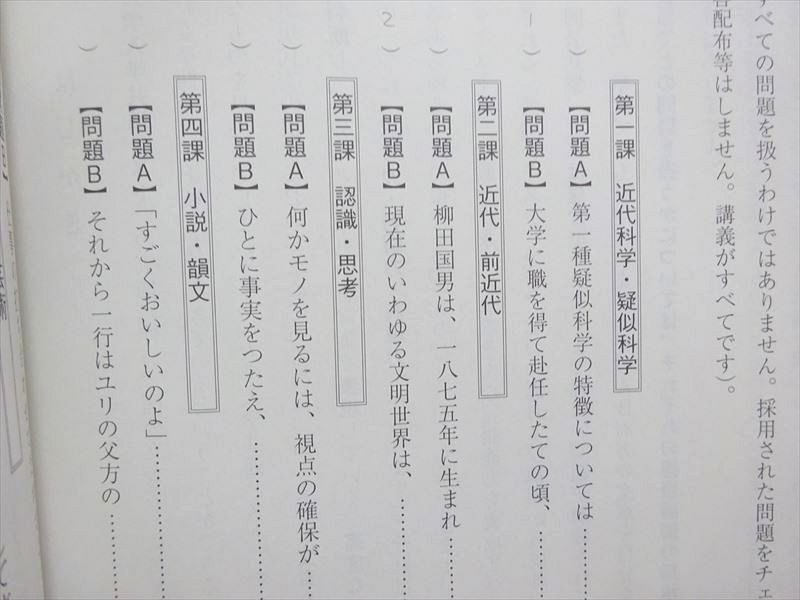 すべての問題を扱うわけではありません。採用された問題をチェ
配布等はしません。講義がすべてです）。
第一課　近代科学・疑似科学
）【問題A】第一種疑似科学の特徴については…………
1）【問題B】大学に職を得て赴任したての頃、…………
第二課　近代・前近代
）【問題A】柳田国男は、一八七五年に生まれ…………
2）【問題B】現在のいわゆる文明世界は、…………
第三課　認識・思考
）【問題A】何かモノを見るには、視点の確保が…………
）【問題B】ひとに事実をつたえ、…………
第四課　小説・韻文
）【問題A】「すごくおいしいのよ」…………
）【問題B】それから一行はユリの父方の…………